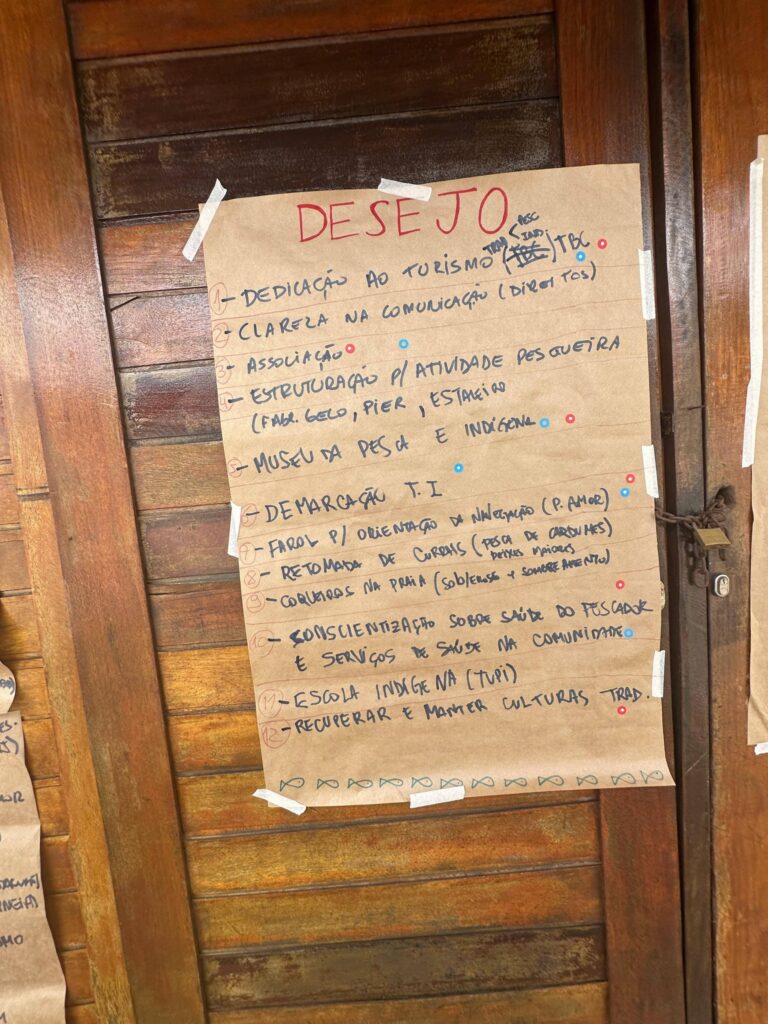 DESEJO
PESC
TRAD < IND
1 - DEDICAÇÃO AO TURISMO (TBC) TBC
2 - CLAREZA NA COMUNICAÇÃO (DIREITOS)
3 - ASSOCIAÇÃO
4 - ESTRUTURAÇÃO P/ ATIVIDADE PESQUEIRA
(FABR. GELO, PIER, ESTALEIRO
5 - MUSEU DA PESCA E INDÍGENA
6 - DEMARCAÇÃO T.I
7 - FAROL P/ ORIENTAÇÃO DA NAVEGAÇÃO (P. AMOR)
8 - RETOMADA DE CURRAIS (PESCA DE CARDUMES)
PEIXES MAIORES
9 - COQUEIROS NA PRAIA (SOMBREAMENTO)
10 - CONSCIENTIZAÇÃO SOBRE SAÚDE DO PESCADOR
E SERVIÇOS DE SAÚDE NA COMUNIDADE
11 - ESCOLA INDÍGENA (TUPI)
12 - RECUPERAR E MANTER CULTURAS TRAD.